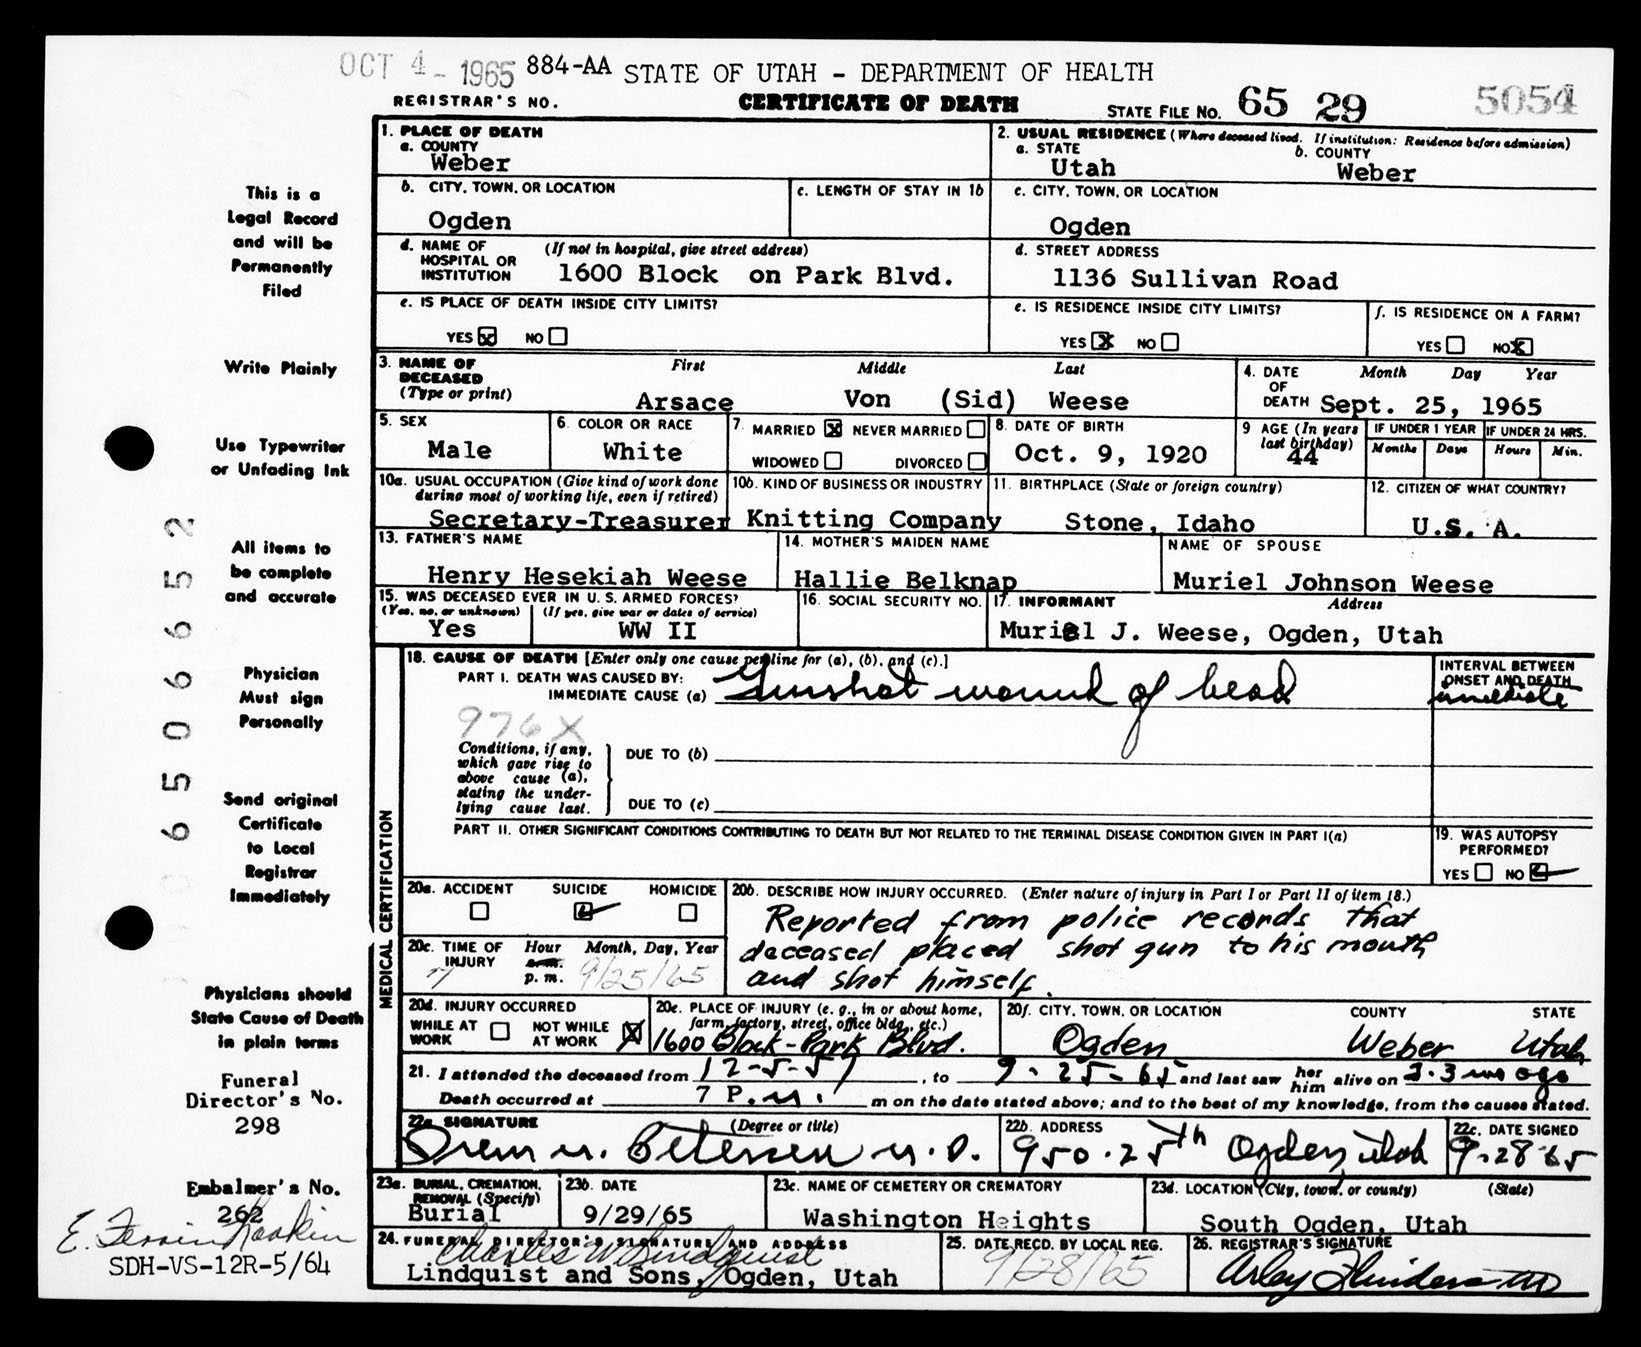 OCT 4 - 1965 884-AA STATE OF UTAH - DEPARTMENT OF HEALTH
REGISTRAR'S NO. CERTIFICATE OF DEATH STATE FILE NO. 65 29 5054
1. PLACE OF DEATH
a. COUNTY
Weber
2. USUAL RESIDENCE (Where deceased lived. If institution: Residence before admission)
a. STATE b. COUNTY
Utah Weber
b. CITY, TOWN, OR LOCATION
Ogden
c. LENGTH OF STAY IN 1b
c. CITY, TOWN, OR LOCATION
Ogden
d. NAME OF HOSPITAL OR INSTITUTION (If not in hospital, give street address)
1600 Block on Park Blvd.
d. STREET ADDRESS
1136 Sullivan Road
e. IS PLACE OF DEATH INSIDE CITY LIMITS?
YES X NO
e. IS RESIDENCE INSIDE CITY LIMITS?
YES X NO
f. IS RESIDENCE ON A FARM?
YES NO X
3. NAME OF DECEASED (Type or print)
First Middle Last
Arsace Von (Sid) Weese
4. DATE OF DEATH
Month Day Year
Sept. 25, 1965
5. SEX
Male
6. COLOR OR RACE
White
7. MARRIED X NEVER MARRIED
WIDOWED DIVORCED
8. DATE OF BIRTH
Oct. 9, 1920
9 AGE (In years last birthday)
44
IF UNDER 1 YEAR
Months Days
IF UNDER 24 HRS.
Hours Min.
10a. USUAL OCCUPATION (Give kind of work done during most of working life, even if retired)
Secretary-Treasurer
10b. KIND OF BUSINESS OR INDUSTRY
Knitting Company
11. BIRTHPLACE (State or foreign country)
Stone, Idaho
12. CITIZEN OF WHAT COUNTRY?
U.S. A.
13. FATHER'S NAME
Henry Hesekiah Weese
14. MOTHER'S MAIDEN NAME
Hallie Belknap
NAME OF SPOUSE
Muriel Johnson Weese
15. WAS DECEASED EVER IN U. S. ARMED FORCES?
(Yes, no, or unknown) (If yes, give war or dates of service)
Yes WW II
16. SOCIAL SECURITY NO.
17. INFORMANT Address
Muriel J. Weese, Ogden, Utah
MEDICAL CERTIFICATION
18. CAUSE OF DEATH [Enter only one cause per line for (a), (b), and (c).]
PART I. DEATH WAS CAUSED BY:
IMMEDIATE CAUSE (a) Gunshot wound of head
INTERVAL BETWEEN ONSET AND DEATH
immediate
976X
Conditions, if any, which gave rise to above cause (a), stating the underlying cause last.
DUE TO (b)
DUE TO (c)
PART II. OTHER SIGNIFICANT CONDITIONS CONTRIBUTING TO DEATH BUT NOT RELATED TO THE TERMINAL DISEASE CONDITION GIVEN IN PART I(a)
19. WAS AUTOPSY PERFORMED?
YES NO
20a. ACCIDENT SUICIDE HOMICIDE
20b. DESCRIBE HOW INJURY OCCURRED. (Enter nature of injury in Part I or Part II of item 18.)
Reported from police records that
deceased placed shot gun to his mouth
and shot himself.
20c. TIME OF INJURY Hour Month, Day, Year
7 a.m. p. m. 9/25/65
20d. INJURY OCCURRED
WHILE AT WORK NOT WHILE AT WORK X
20e. PLACE OF INJURY (e. g., in or about home, farm, factory, street, office bldg., etc.)
1600 Block - Park Blvd.
20f. CITY, TOWN, OR LOCATION COUNTY STATE
Ogden Weber Utah
21. I attended the deceased from 12-5-57, to 9-25-65 and last saw her him alive on 2-3 mo ago
Death occurred at 7 P.M. m on the date stated above; and to the best of my knowledge, from the causes stated.
22a. SIGNATURE (Degree or title)
Petersen M. D.
22b. ADDRESS
950-25th Ogden, Utah
22c. DATE SIGNED
9-28-65
23a. BURIAL, CREMATION, REMOVAL (Specify)
Burial
23b. DATE
9/29/65
23c. NAME OF CEMETERY OR CREMATORY
Washington Heights
23d. LOCATION (City, town, or county) (State)
South Ogden, Utah
24. FUNERAL DIRECTOR'S SIGNATURE AND ADDRESS
Charles W. Lindquist
Lindquist and Sons, Ogden, Utah
25. DATE RECD. BY LOCAL REG.
9/28/65
26. REGISTRAR'S SIGNATURE
This is a
Legal Record
and will be
Permanently
Filed
Write Plainly
Use Typewriter
or Unfading Ink
All items to
be complete
and accurate
Physician
Must sign
Personally
Send original
Certificate
to Local
Registrar
Immediately
Physicians should
State Cause of Death
in plain terms
Funeral
Director's No.
298
Embalmer's No.
262
SDH-VS-12R-5/64
6506652